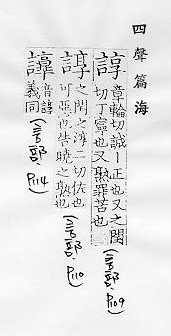 四聲篇海
諄 章輪切誠丨正也又之閏
切丁寧也又熟罪苦也
(言部. P109)
之閏之淳二切佐也
可惡也告曉之熟也
(言部. P110)
音諄
義同
(言部. P114)